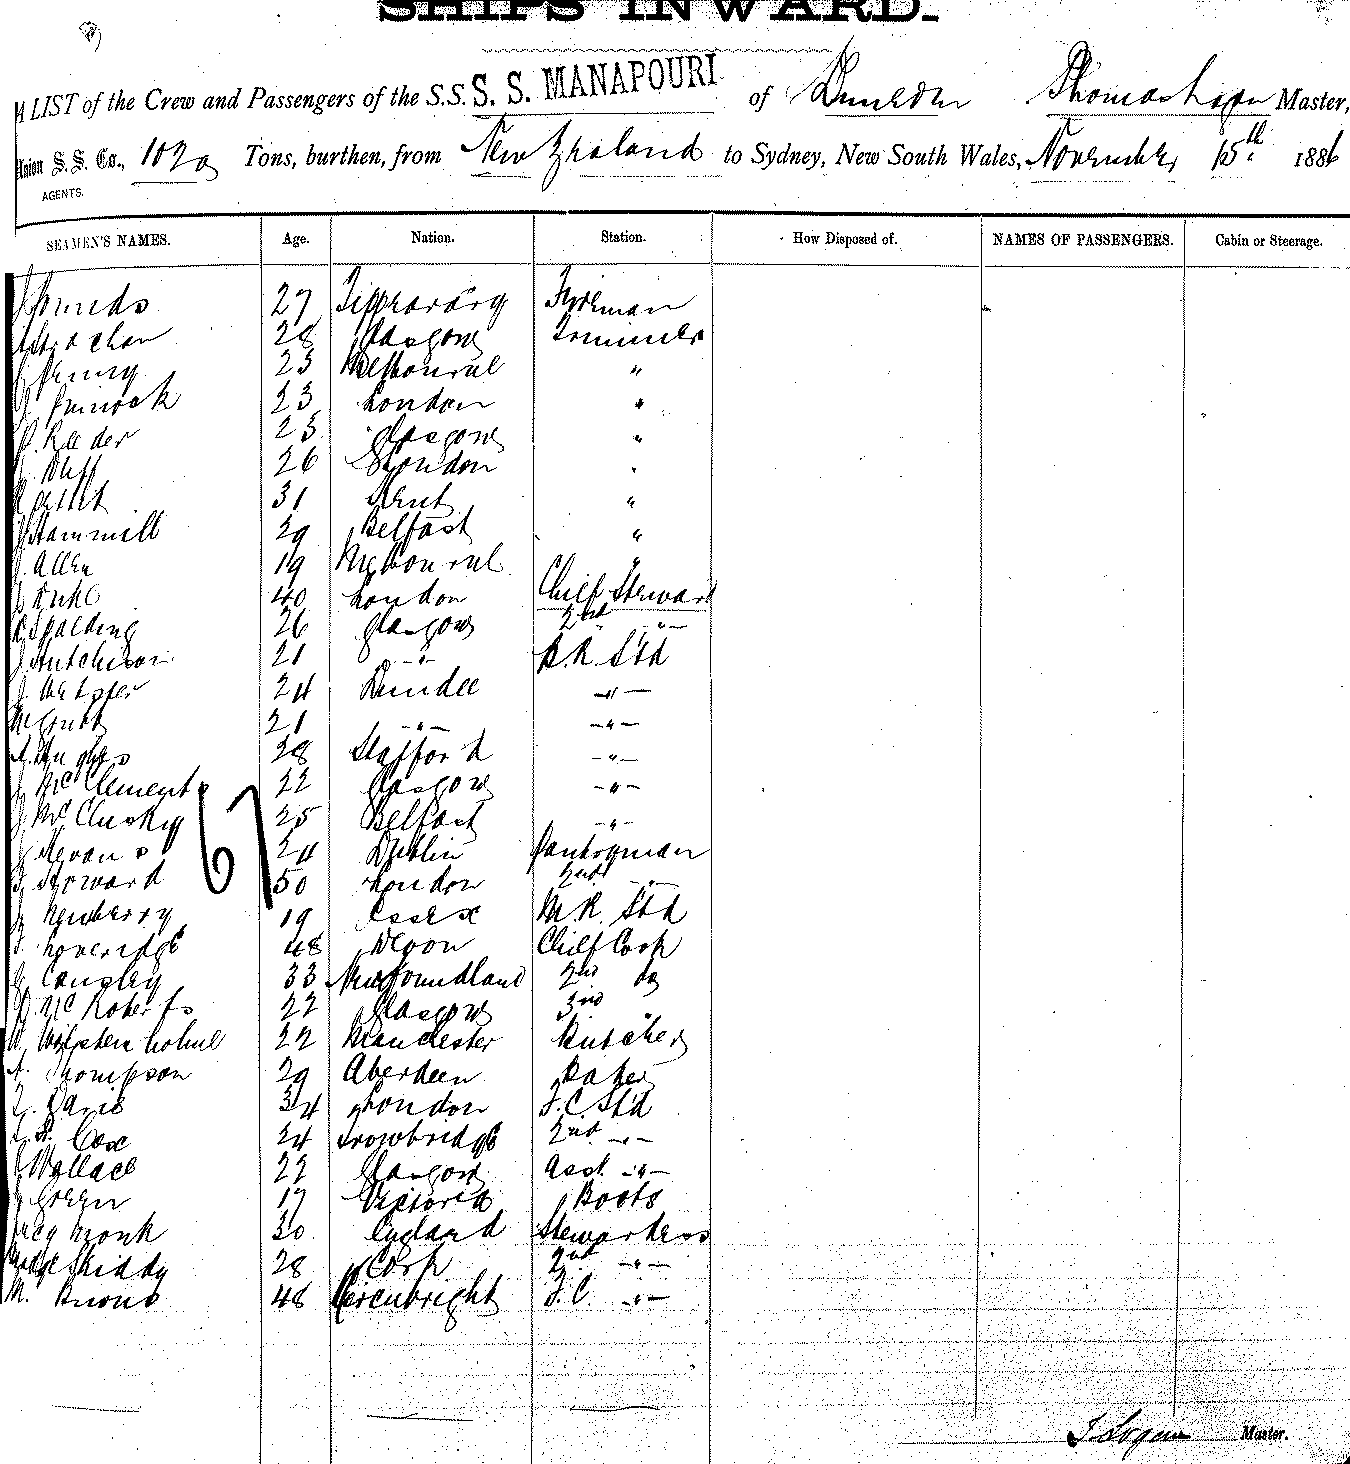 SHIPS INWARD.
A LIST of the Crew and Passengers of the S.S. S. S. MANAPOURI of Dunedin Thomas Logan Master,
Union S. S. Co., 1020 Tons, burthen, from New Zealand to Sydney, New South Wales, November 15th 1886
AGENTS.
SEAMEN'S NAMES. Age. Nation. Station. How Disposed of. NAMES OF PASSENGERS. Cabin or Steerage.
27 Tipperary Fireman
Strachan 28 Glasgow Trimmer
23 Melbourne "
23 London "
Reeder 23 Glasgow "
Duff 26 London "
31 Kent "
Hammill 29 Belfast "
J. Allen 19 Melbourne "
40 London Chief Steward
Spalding 26 Glasgow 2nd "
J. Hutchison 21 " B.R. Std
J. Webster 24 Dundee "
21 " "
A. Hughes 28 Stafford "
J McClements 22 Glasgow "
J McClusky 25 Belfast "
24 Dublin Pantryman
50 London 2nd "
J Newberry 19 Essex M.R. Std
Loveridge 48 Devon Chief Cook
33 Newfoundland 2nd do
McRoberts 22 Glasgow 3rd "
W. Wolstenholme 22 Manchester Butcher
A. Thompson 29 Aberdeen Baker
Davis 34 London F.C. Std
Cox 24 Trowbridge 2nd "
Wallace 22 Glasgow Asst. "
Green 17 Victoria Boots
Lucy Monk 30 England Stewardess
Madge Skiddy 28 Cork 2nd "
M. 48 Kircubright F.C. "
67
T Logan Master.